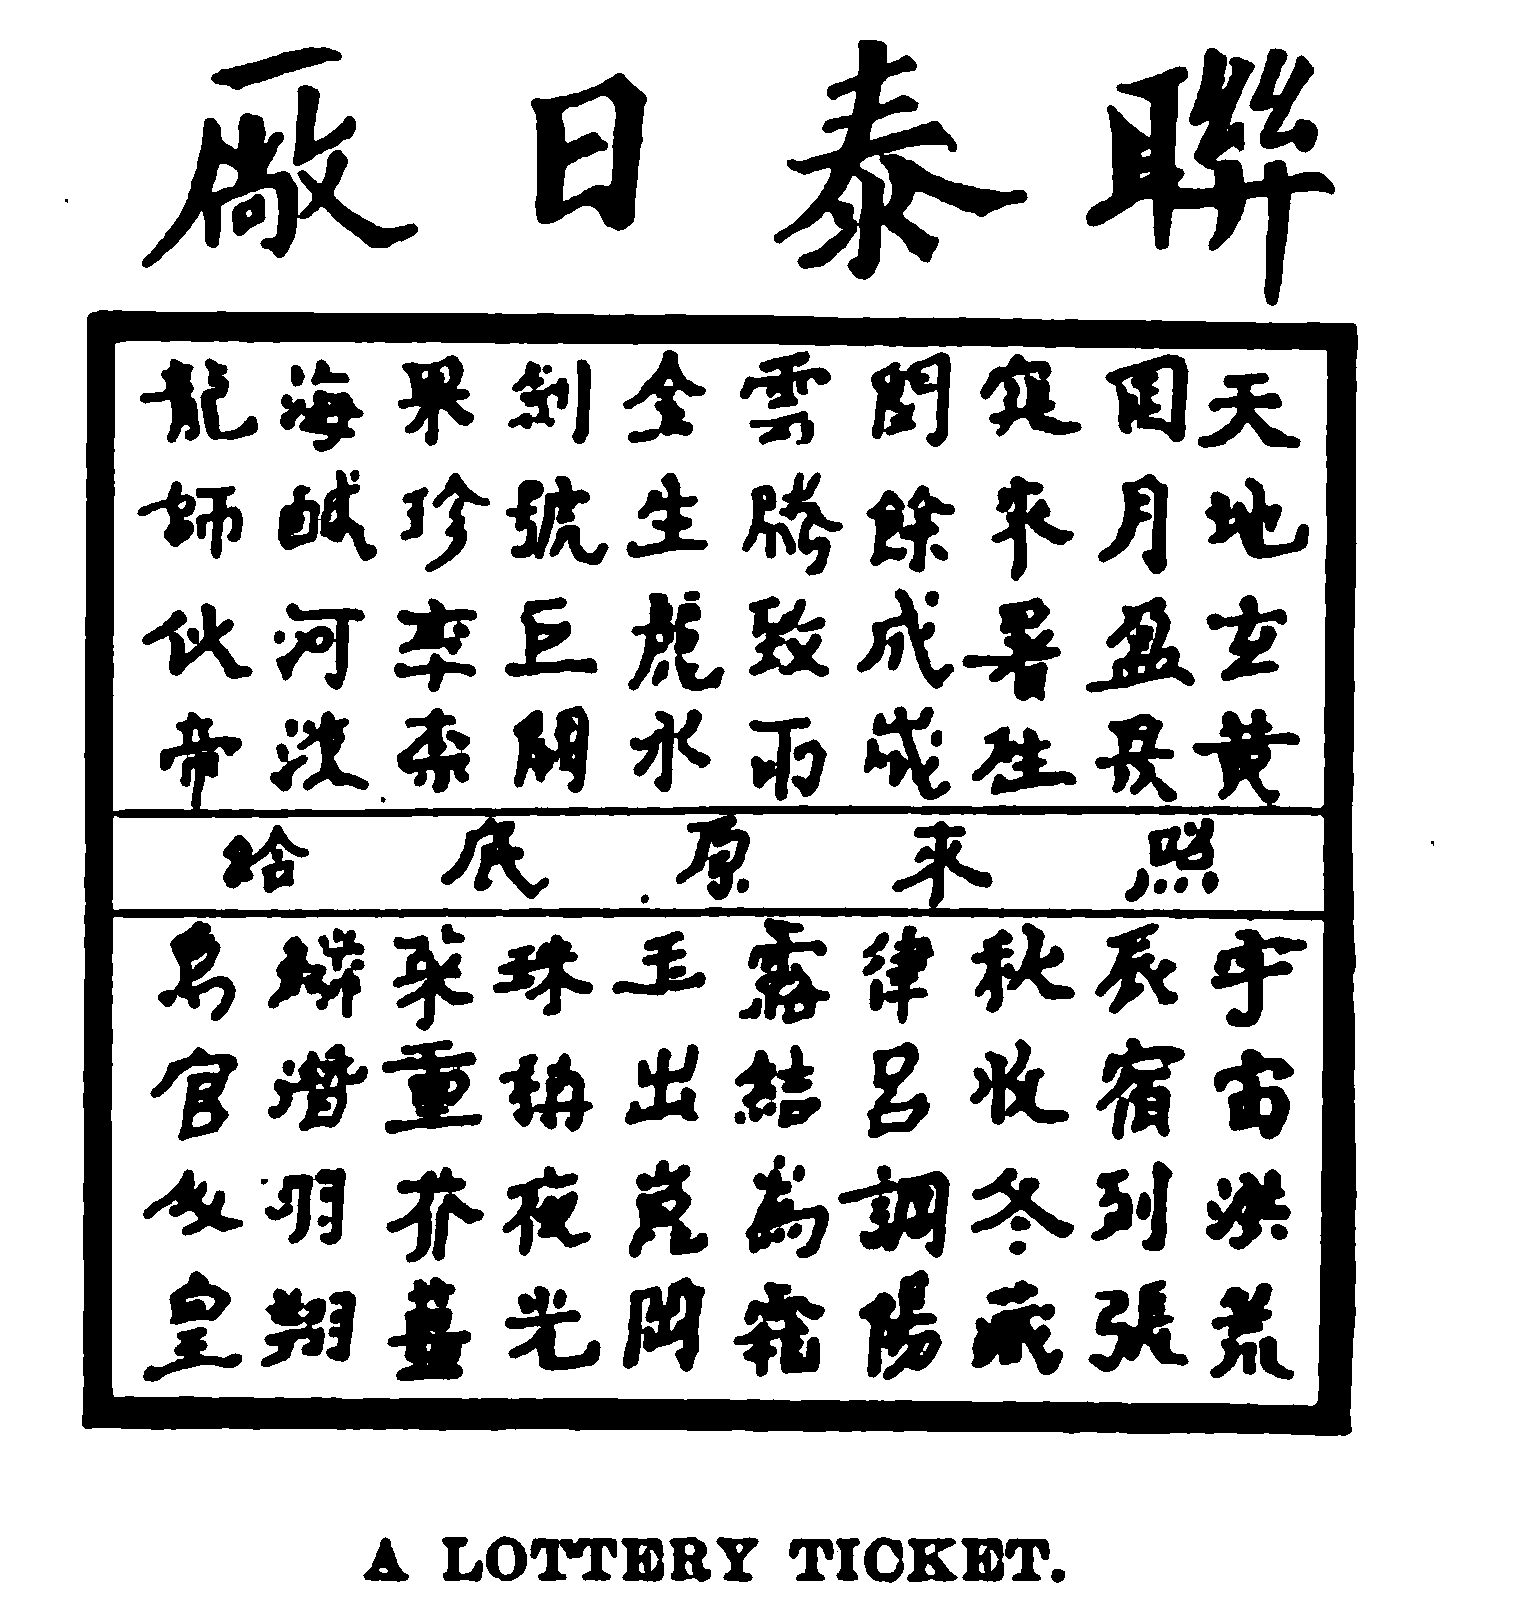 聯泰日廠
天地玄黃
囸月盈昃
寒來暑往
閏餘成歲
雲騰致雨
金生麗水
劍號巨闕
果珍李柰
海鹹河淡
龍師伙帝
照來原底給
宇宙洪荒
辰宿列張
秋收冬藏
律呂調陽
露結為霜
玉出崑岡
珠稱夜光
菜重芥薑
鱗潛羽翔
鳥官皇
A LOTTERY TICKET.